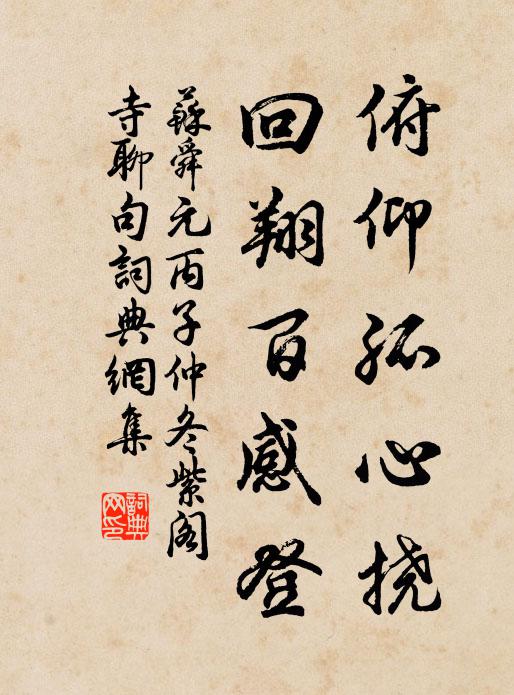 俯仰孤心挠
回翔百感登
蘇舜元丙子仲冬紫阁
寺聊句詞典網集
詞典
网印